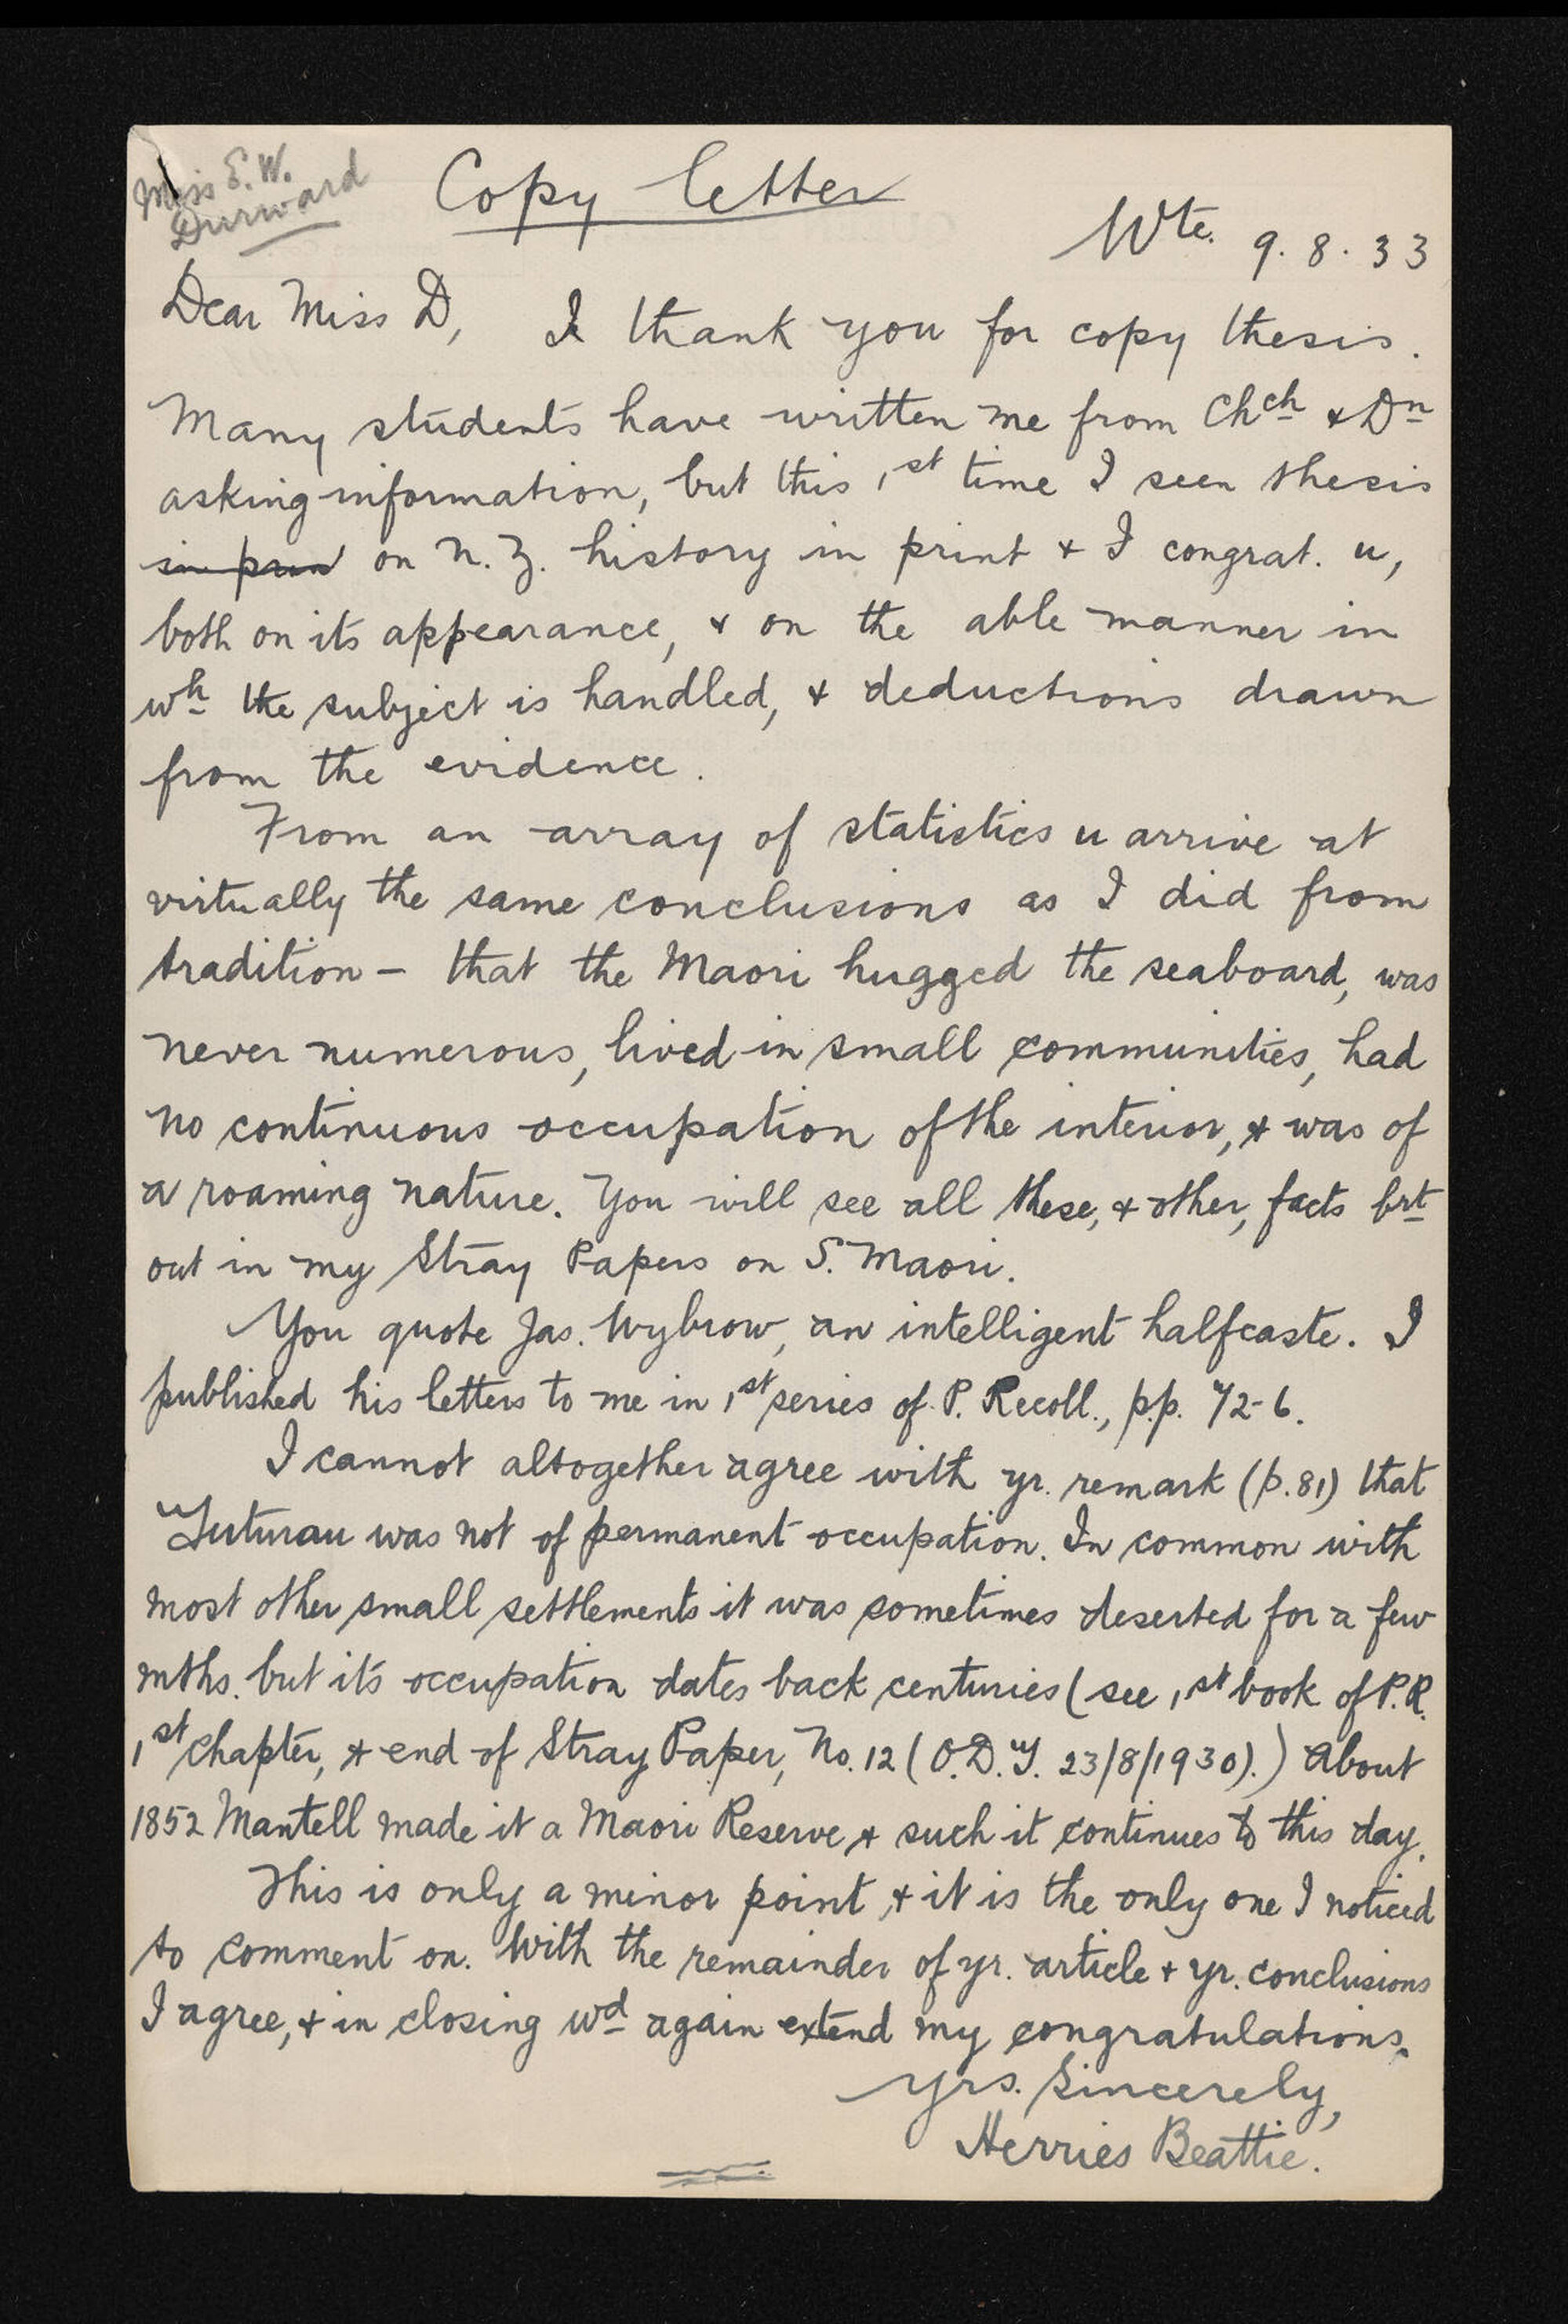 Miss E. W.
Durward
Copy letter
Wte. 9. 8. 33
Dear Miss D, I thank you for copy thesis.
Many students have written me from Chch & Dn
asking information, but this 1st time I seen thesis
in prin on N. Z. history in print & I congrat. u,
both on its appearance, & on the able manner in
wh the subject is handled, & deductions drawn
from the evidence.
From an array of statistics u arrive at
virtually the same conclusions as I did from
tradition – that the Maori hugged the seaboard, was
never numerous, lived in small communities, had
no continuous occupation of the interior, & was of
a roaming nature. You will see all these, & other, facts brt
out in my Stray Papers on S. Maori.
You quote Jas. Wybrow, an intelligent halfcaste. I
published his letters to me in 1st series of P. Recoll., pp. 72-6.
I cannot altogether agree with yr. remark (p.81) that
Tuturau was not of permanent occupation. In common with
most other small settlements it was sometimes deserted for a few
mths. but its occupation dates back centuries (see 1st book of P.R.
1st chapter, & end of Stray Paper, No. 12 (O.D.T. 23/8/1930).) About
1852 Mantell made it a Maori Reserve & such it continues to this day.
This is only a minor point, & it is the only one I noticed
to comment on. With the remainder of yr. article & yr. conclusions
I agree, & in closing wd again extend my congratulations.
Yrs. Sincerely,
Herries Beattie.